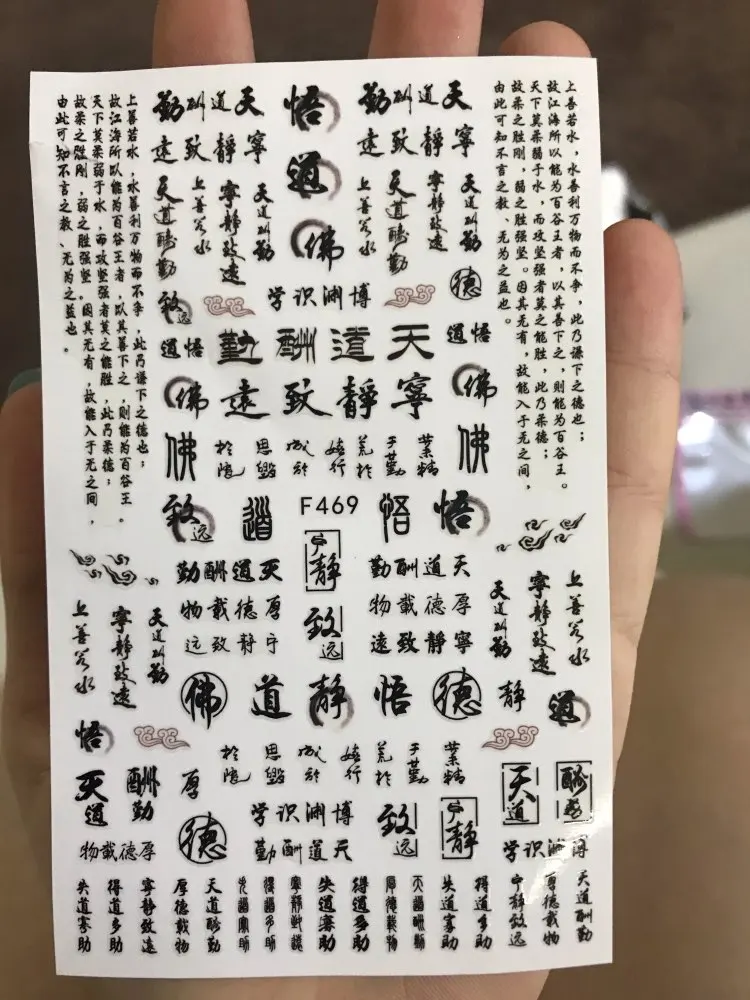 上善若水，水善利万物而不争，此乃谦下之德也；
故江海所以能为百谷王者，以其善下之，则能为百谷王。
天下莫柔弱于水，而攻坚强者莫之能胜，此乃柔德；
故柔之胜刚，弱之胜强坚。因其无有，故能入于无之间，
由此可知不言之教、无为之益也。
上善若水，水善利万物而不争，此乃谦下之德也；
故江海所以能为百谷王者，以其善下之，则能为百谷王。
天下莫柔弱于水，而攻坚强者莫之能胜，此乃柔德；
故柔之胜刚，弱之胜强坚。因其无有，故能入于无之间，
由此可知不言之教、无为之益也。
天道酬勤
寧靜致遠
悟
道
佛
天道酬勤
寧靜致遠
天道酬勤
寧靜致遠
上善若水
天道酬勤
天道酬勤
寧靜致遠
天道酬勤
上善若水
德
致远
博渊识学
悟道
天道酬勤
悟道
佛
寧靜致遠
佛
佛
業精
于勤
荒於
嬉行
成於
思毁
於隨
佛
致远
道
F469
悟
悟
宁静
致远
天道酬勤
厚德載物
宁静致远
天道酬勤
厚德載物
寧靜致遠
天道酬勤
寧靜致遠
上善若水
上善若水
寧靜致遠
天道酬勤
佛
道
静
悟
德
静
道
悟
業精
于勤
荒於
嬉行
成於
思毁
於隨
天道
酬勤
厚
德
厚德載物
博渊识学
天道酬勤
致远
宁静
天道
酬勤
博渊识学
天道酬勤
厚德載物
宁静致远
得道多助
失道寡助
天道酬勤
厚德載物
得道多助
失道寡助
寧靜致遠
得道多助
失道寡助
天道酬勤
厚德載物
寧靜致遠
得道多助
失道寡助